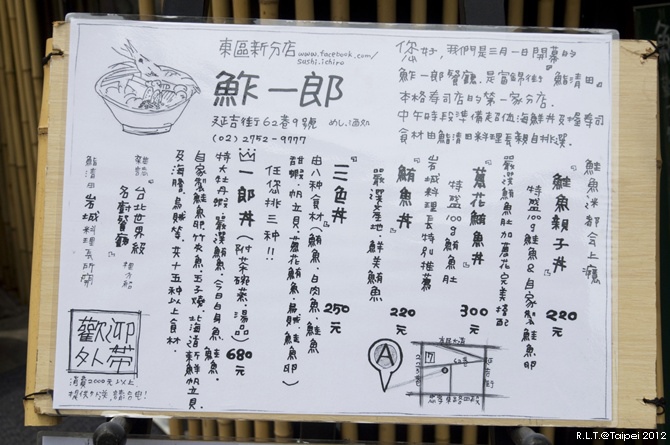 東區新分店 www.facebook.com/
sushi.ichiro
鮓一郎
延吉街62巷9號 めし.酒処
(02) 2752-9777
您好,我們是三月一日開幕的
鮓一郎餐廳,是富錦街『鮨清田』
本格壽司店的第一家分店.
中午時段準備超值海鮮丼及握壽司
食材由鮨清田料理長親自挑選.
鮭魚迷都會上癮
『鮭魚親子丼』
220元
特盛100g鮭魚&自家製鮭魚卵
嚴選鮪魚肚加蔥花完美搭配
『蔥花鮪魚丼』
300元
特盛100g鮪魚肚
岩城料理長特別推薦
『鮪魚丼』
220元
嚴選產地.鮮美鮪魚
『三色丼』
250元
由八種食材(鮪魚.白肉魚.鮭魚
甜蝦.帆立貝.蔥花鮪魚.烏賊.鮭魚卵)
任您挑三種!!
『一郎丼』(附茶碗蒸.湯品)
680元
特大牡丹蝦.嚴選鮪魚.今日白身魚.鮭魚.
自家製鮭魚卵.竹炙魚.玉子燒.北海道來鮮帆立貝.
及海膽.烏賊等.共十五種以上食材.
『台北世界級
名廚餐廳』
雜誌
推介給
鮨清田 岩城料理長所開
歡迎
外帶
消費2000元以上
A